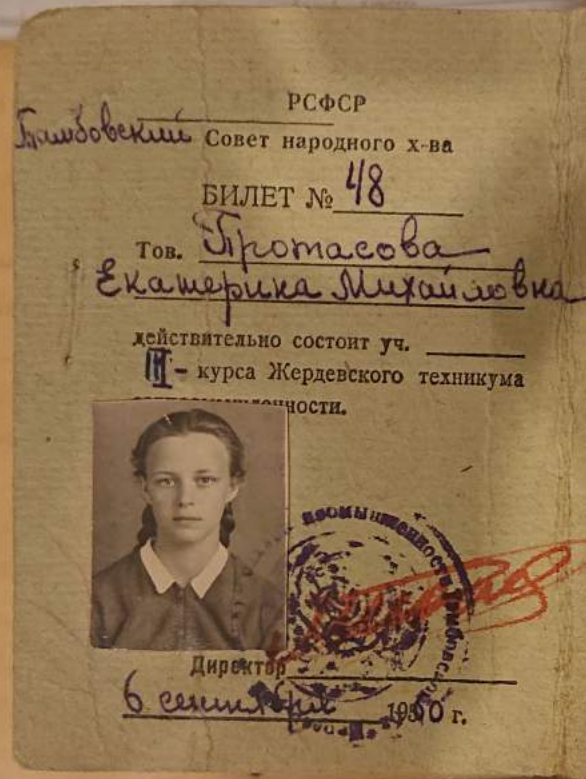 РСФСР
Тамбовский Совет народного х-ва
БИЛЕТ № 48
Тов. Протасова
Екатерина Михайловна
действительно состоит уч.
III - курса Жердевского техникума
ности.
промышленности Тамбовского
Директор
6 сентября 1960 г.